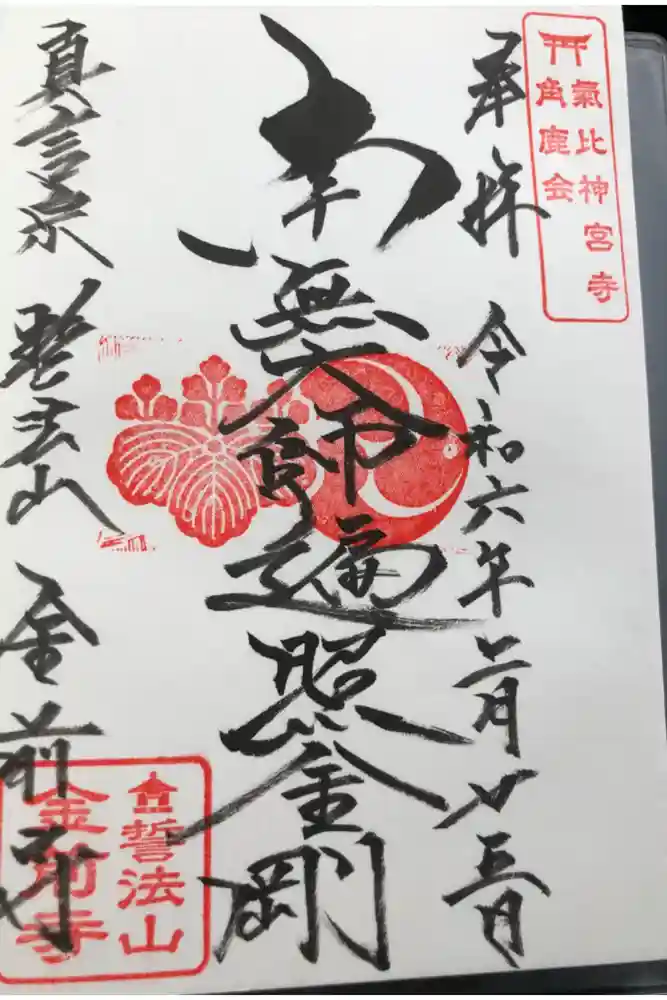 氣比神宮寺
角鹿会
奉拝 令和六年二月廿三日
南無大師遍照金剛
真言宗 誓法山 金前寺
誓法山
金前寺